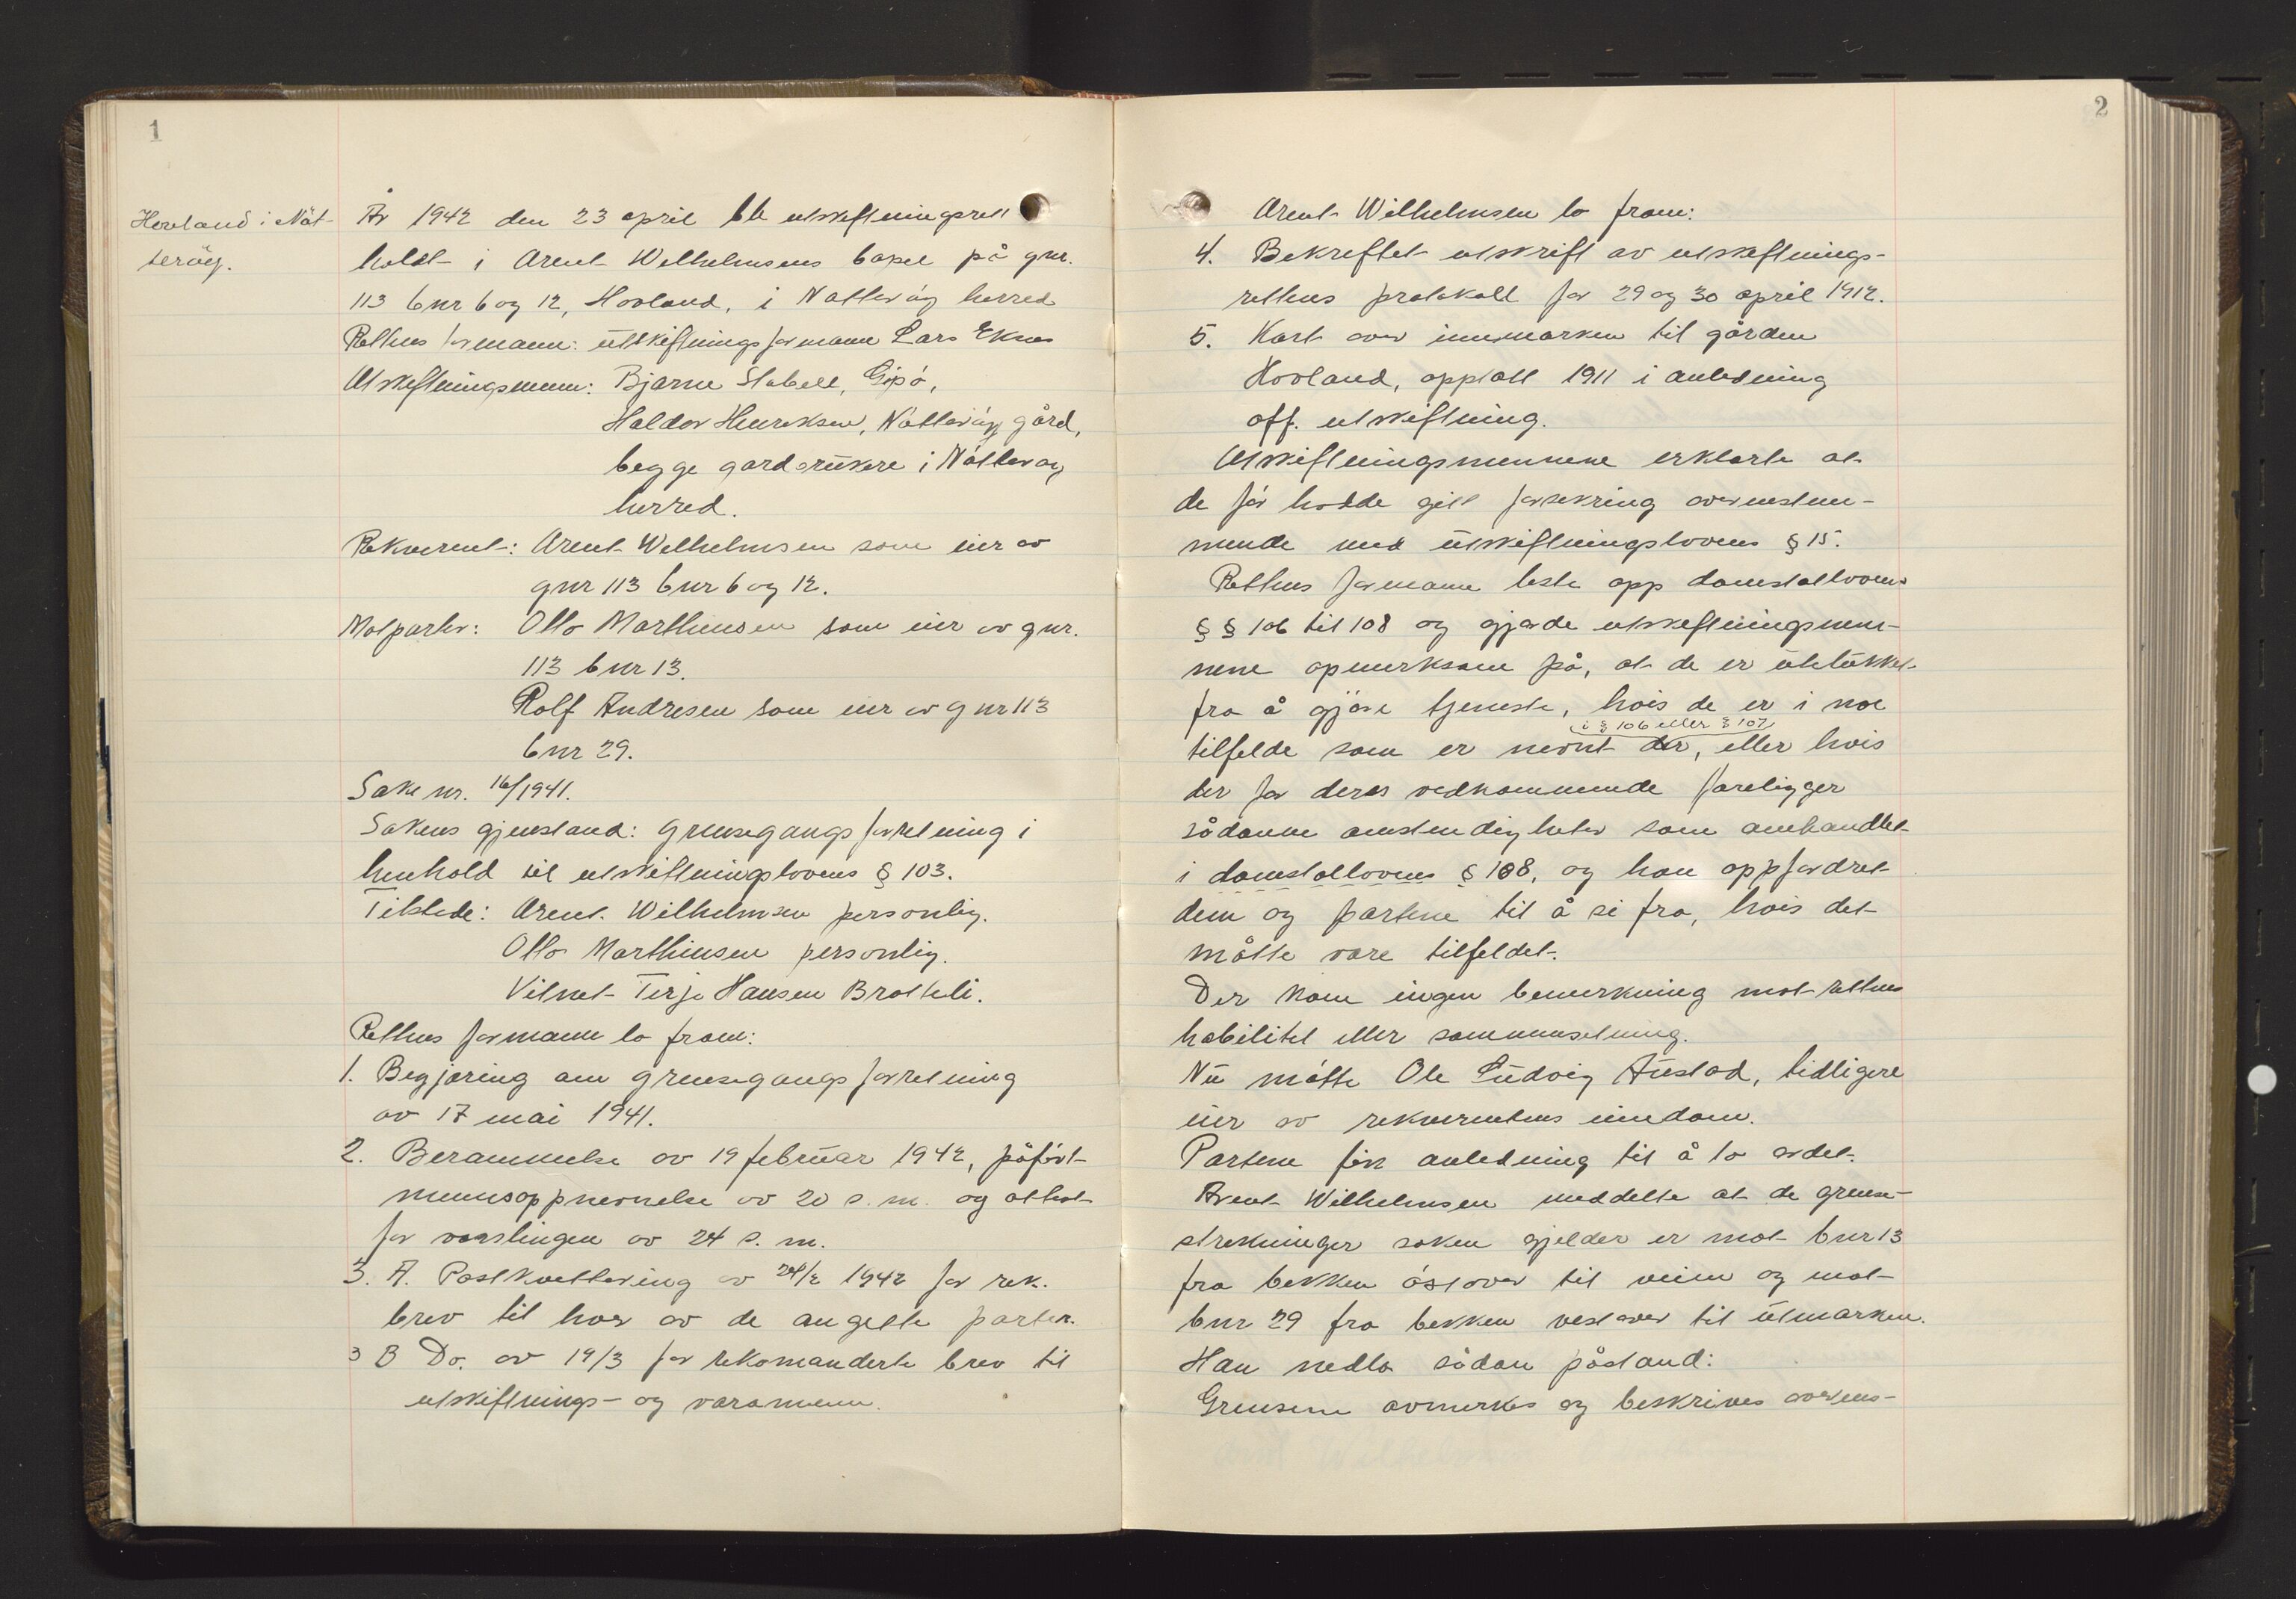 1
Hovland i Nöt-
teröy.
År 1942 den 23 april ble utskiftningsrett
holdt i Arent Wilhelmsens bopel på gnr.
113 bnr 6 og 12, Hovland, i Nötteröy herred
Rettens formann: utskiftningsformann Lars Eknes
Utskiftningsmenn: Bjarne Stabell, Gipö,
Haldor Henriksen, Nötteröy gård,
begge gardbrukere i Nötteröy
herred.
Rekvirent: Arent Wilhelmsen som eier av
gnr 113 bnr 6 og 12.
Motparter: Otto Marthinsen som eier av gnr.
113 bnr 13.
Rolf Andresen som eier av gnr 113
bnr 29.
Sak nr. 16/1941.
Sakens gjenstand: Grensegangsforretning i
henhold til utskiftningslovens § 103.
Tilstede: Arent Wilhelmsen personlig.
Otto Marthinsen personlig.
Vitnet Terje Hansen Bratteli.
Rettens formann la fram:
1. Begjæring om grensegangsforretning
av 17 mai 1941.
2. Berammelse av 19 februar 1942, påfört
mennsoppnevnelse av 20 s.m. og attest
for varslingen av 24 s.m.
3. A. Postkvittering av 24/2 1942 for rek.
brev til hver av de angitte parter.
3 B Do. av 19/3 for rekomanderte brev til
utskiftnings- og varamenn.
2
Arent Wilhelmsen la fram:
4. Bekreftet utskrift av utskiftnings-
rettens protokoll for 29 og 30 april 1912.
5. Kart over innmarken til gården
Hovland, opptatt 1911 i anledning
off. utskiftning.
Utskiftningsmennene erklærte at
de för hadde gitt forsikring overenstem-
mende med utskiftningslovens § 15.
Rettens formann leste opp domstollovens
§ § 106 til 108 og gjorde utskiftningsmen-
nene opmerksom på, at de er utelukket
fra å gjöre tjeneste, hvis de er i noe
i § 106 eller § 107
tilfelde som er nevnt der, eller hvis
der for deres vedkommende foreligger
sådanne omstendigheter som omhandlet
i domstollovens § 108, og han oppfordret
dem og partene til å si fra, hvis det
måtte være tilfeldet.
Der kom ingen bemerkning mot rettens
habilitet eller sammensetning.
Nu mötte Ole Ludvig Austad, tidligere
eier av rekvirentens eiendom.
Partene fikk anledning til å ta ordet.
Arent Wilhelmsen meddelte at de grense-
strekninger saken gjelder er mot bnr 13
fra bekken östover til veien og mot
bnr 29 fra bekken vestover til utmarken.
Han nedla sådan påstand:
Grensene avmerkes og beskrives overens-